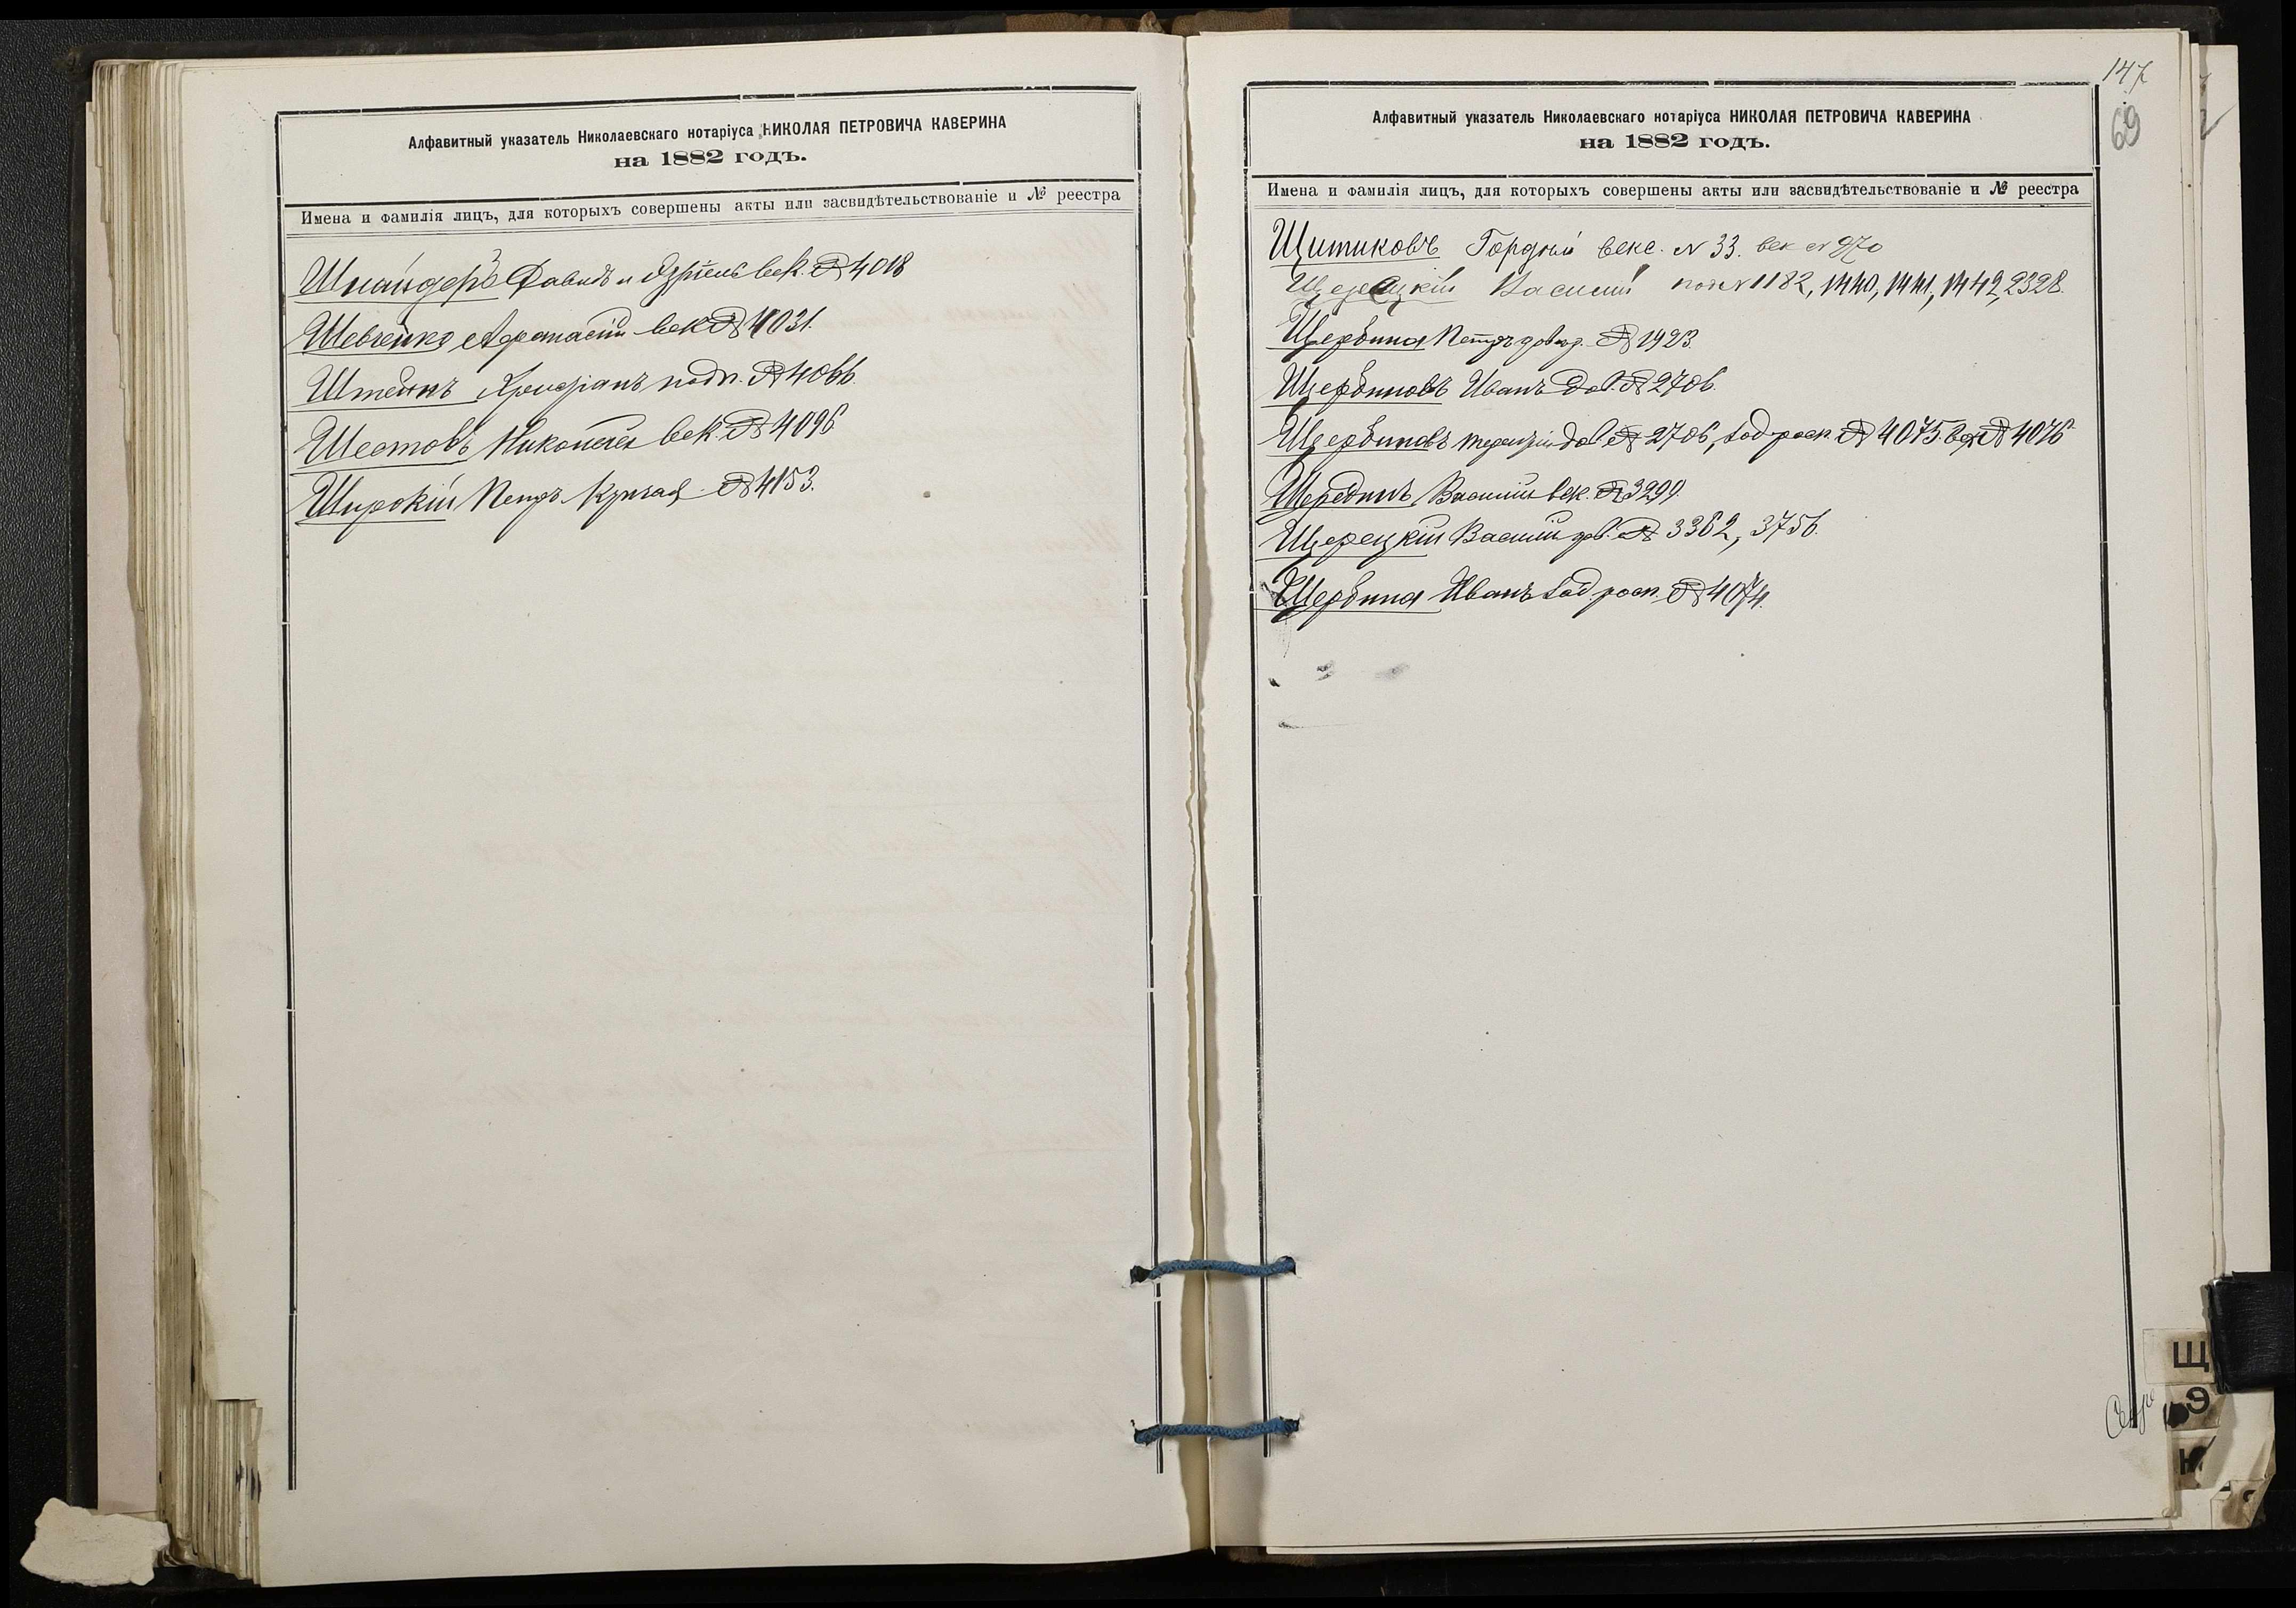 Алфавитный указатель Николаевскаго нотаріуса НИКОЛАЯ ПЕТРОВИЧА КАВЕРИНА
на 1882 годъ.
Имена и фамилія лицъ, для которыхъ совершены акты или засвидѣтельствованіе и № реестра
Шнайдеръ Давидъ и век. № 4018
Шевченко Афанасій век № 4031.
Штейнъ подп. № 4066.
Шестовъ Николай век. № 4096
Широкій Петръ № 4153.
147
69
Алфавитный указатель Николаевскаго нотаріуса НИКОЛАЯ ПЕТРОВИЧА КАВЕРИНА
на 1882 годъ.
Имена и фамилія лицъ, для которыхъ совершены акты или засвидѣтельствованіе и № реестра
Щитиковъ Гордѣй векс. № 33. век № 970
Щерецкій Василій № 1182, 1440, 1441, 1442, 2328.
Щербина Петръ № 1923.
Щербиновъ Иванъ дов. № 2706.
Щербиновъ Терентій дов. № 2706, 4075. век № 4076
Щерединъ Василій век. № 3299.
Щерецкій Василій дов. № 3362, 3756.
Щербина Иванъ № 4074.
Щ
Э